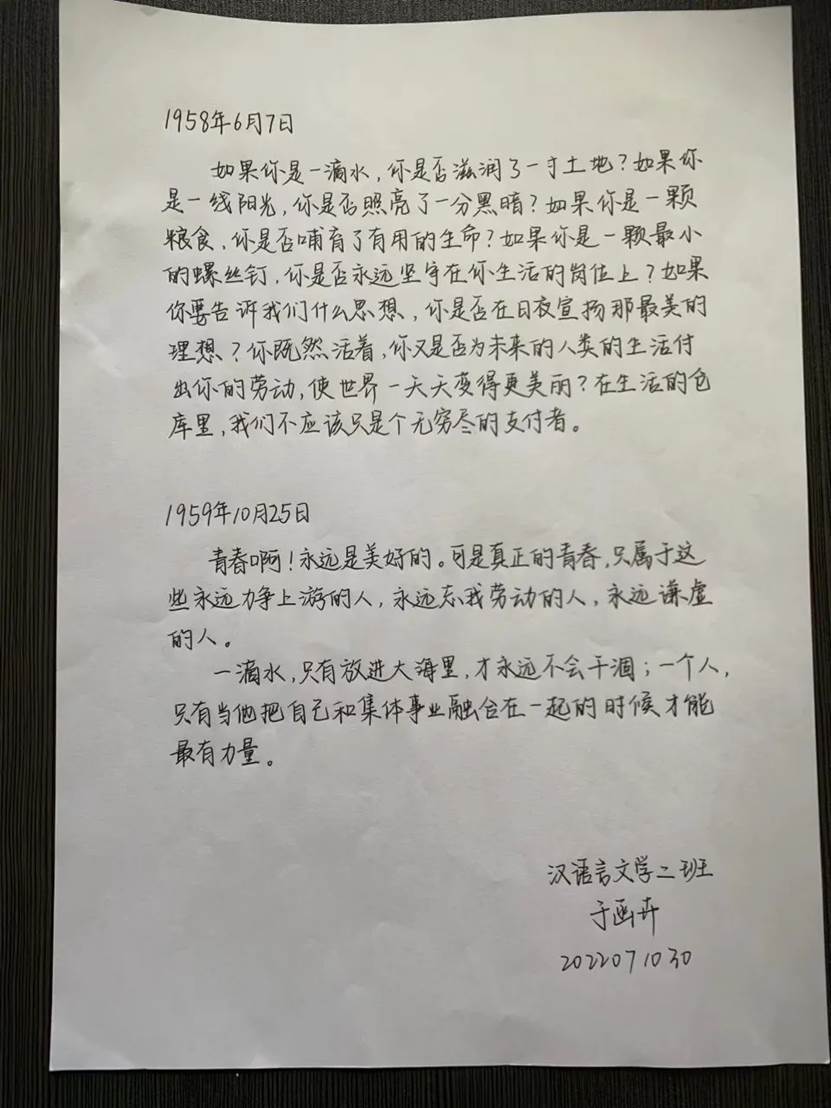 1958年6月7日
如果你是一滴水，你是否滋润了一寸土地？如果你
是一线阳光，你是否照亮了一分黑暗？如果你是一颗
粮食，你是否哺育了有用的生命？如果你是一颗最小
的螺丝钉，你是否永远坚守在你生活的岗位上？如果
你要告诉我们什么思想，你是否在日夜宣扬那最美的
理想？你既然活着，你又是否为未来的人类的生活付
出你的劳动，使世界一天天变得更美丽？在生活的仓
库里，我们不应该只是个无穷尽的支付者。
1959年10月25日
青春啊！永远是美好的。可是真正的青春，只属于这
些永远力争上游的人，永远忘我劳动的人，永远谦虚
的人。
一滴水，只有放进大海里，才永远不会干涸；一个人，
只有当他把自己和集体事业融合在一起的时候才能
最有力量。
汉语言文学二班
于函卉
2022071030